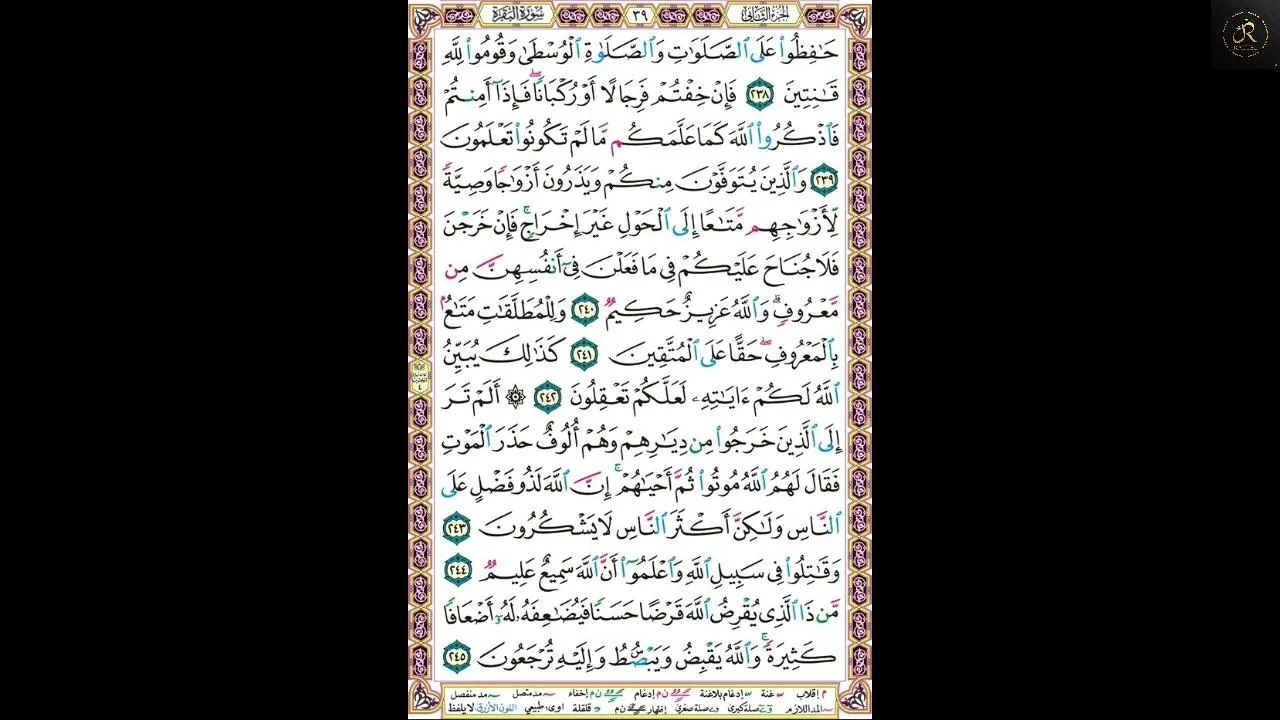 سُورَةُ البَقَرَةِ ٣٩ الجُزْءُ الثَّانِي
حَـٰفِظُوا۟ عَلَى ٱلصَّلَوَٰتِ وَٱلصَّلَوٰةِ ٱلْوُسْطَىٰ وَقُومُوا۟ لِلَّهِ
قَـٰنِتِينَ ٢٣٨ فَإِنْ خِفْتُمْ فَرِجَالًا أَوْ رُكْبَانًاۖ فَإِذَآ أَمِنتُمْ
فَٱذْكُرُوا۟ ٱللَّهَ كَمَا عَلَّمَكُم مَّا لَمْ تَكُونُوا۟ تَعْلَمُونَ
٢٣٩ وَٱلَّذِينَ يُتَوَفَّوْنَ مِنكُمْ وَيَذَرُونَ أَزْوَٰجًا وَصِيَّةً
لِّأَزْوَٰجِهِم مَّتَـٰعًا إِلَى ٱلْحَوْلِ غَيْرَ إِخْرَاجٍۚ فَإِنْ خَرَجْنَ
فَلَا جُنَاحَ عَلَيْكُمْ فِى مَا فَعَلْنَ فِىٓ أَنفُسِهِنَّ مِن
مَّعْرُوفٍۗ وَٱللَّهُ عَزِيزٌ حَكِيمٌ ٢٤٠ وَلِلْمُطَلَّقَـٰتِ مَتَـٰعٌۢ
بِٱلْمَعْرُوفِۖ حَقًّا عَلَى ٱلْمُتَّقِينَ ٢٤١ كَذَٰلِكَ يُبَيِّنُ
ٱللَّهُ لَكُمْ ءَايَـٰتِهِۦ لَعَلَّكُمْ تَعْقِلُونَ ٢٤٢ ۞ أَلَمْ تَرَ
إِلَى ٱلَّذِينَ خَرَجُوا۟ مِن دِيَـٰرِهِمْ وَهُمْ أُلُوفٌ حَذَرَ ٱلْمَوْتِ
فَقَالَ لَهُمُ ٱللَّهُ مُوتُوا۟ ثُمَّ أَحْيَـٰهُمْۚ إِنَّ ٱللَّهَ لَذُو فَضْلٍ عَلَى
ٱلنَّاسِ وَلَـٰكِنَّ أَكْثَرَ ٱلنَّاسِ لَا يَشْكُرُونَ ٢٤٣
وَقَـٰتِلُوا۟ فِى سَبِيلِ ٱللَّهِ وَٱعْلَمُوٓا۟ أَنَّ ٱللَّهَ سَمِيعٌ عَلِيمٌ ٢٤٤
مَّن ذَا ٱلَّذِى يُقْرِضُ ٱللَّهَ قَرْضًا حَسَنًا فَيُضَـٰعِفَهُۥ لَهُۥٓ أَضْعَافًا
كَثِيرَةًۚ وَٱللَّهُ يَقْبِضُ وَيَبْصُۜطُ وَإِلَيْهِ تُرْجَعُونَ ٢٤٥
م إقلاب غنة إدغام بلاغنة ن م إدغام ن م إخفاء مد متصل مد منفصل
المد اللازم صلة كبرى صلة صغرى إظهار ن م قلقلة اوى طبيعي اللون الأزرق لا يلفظ